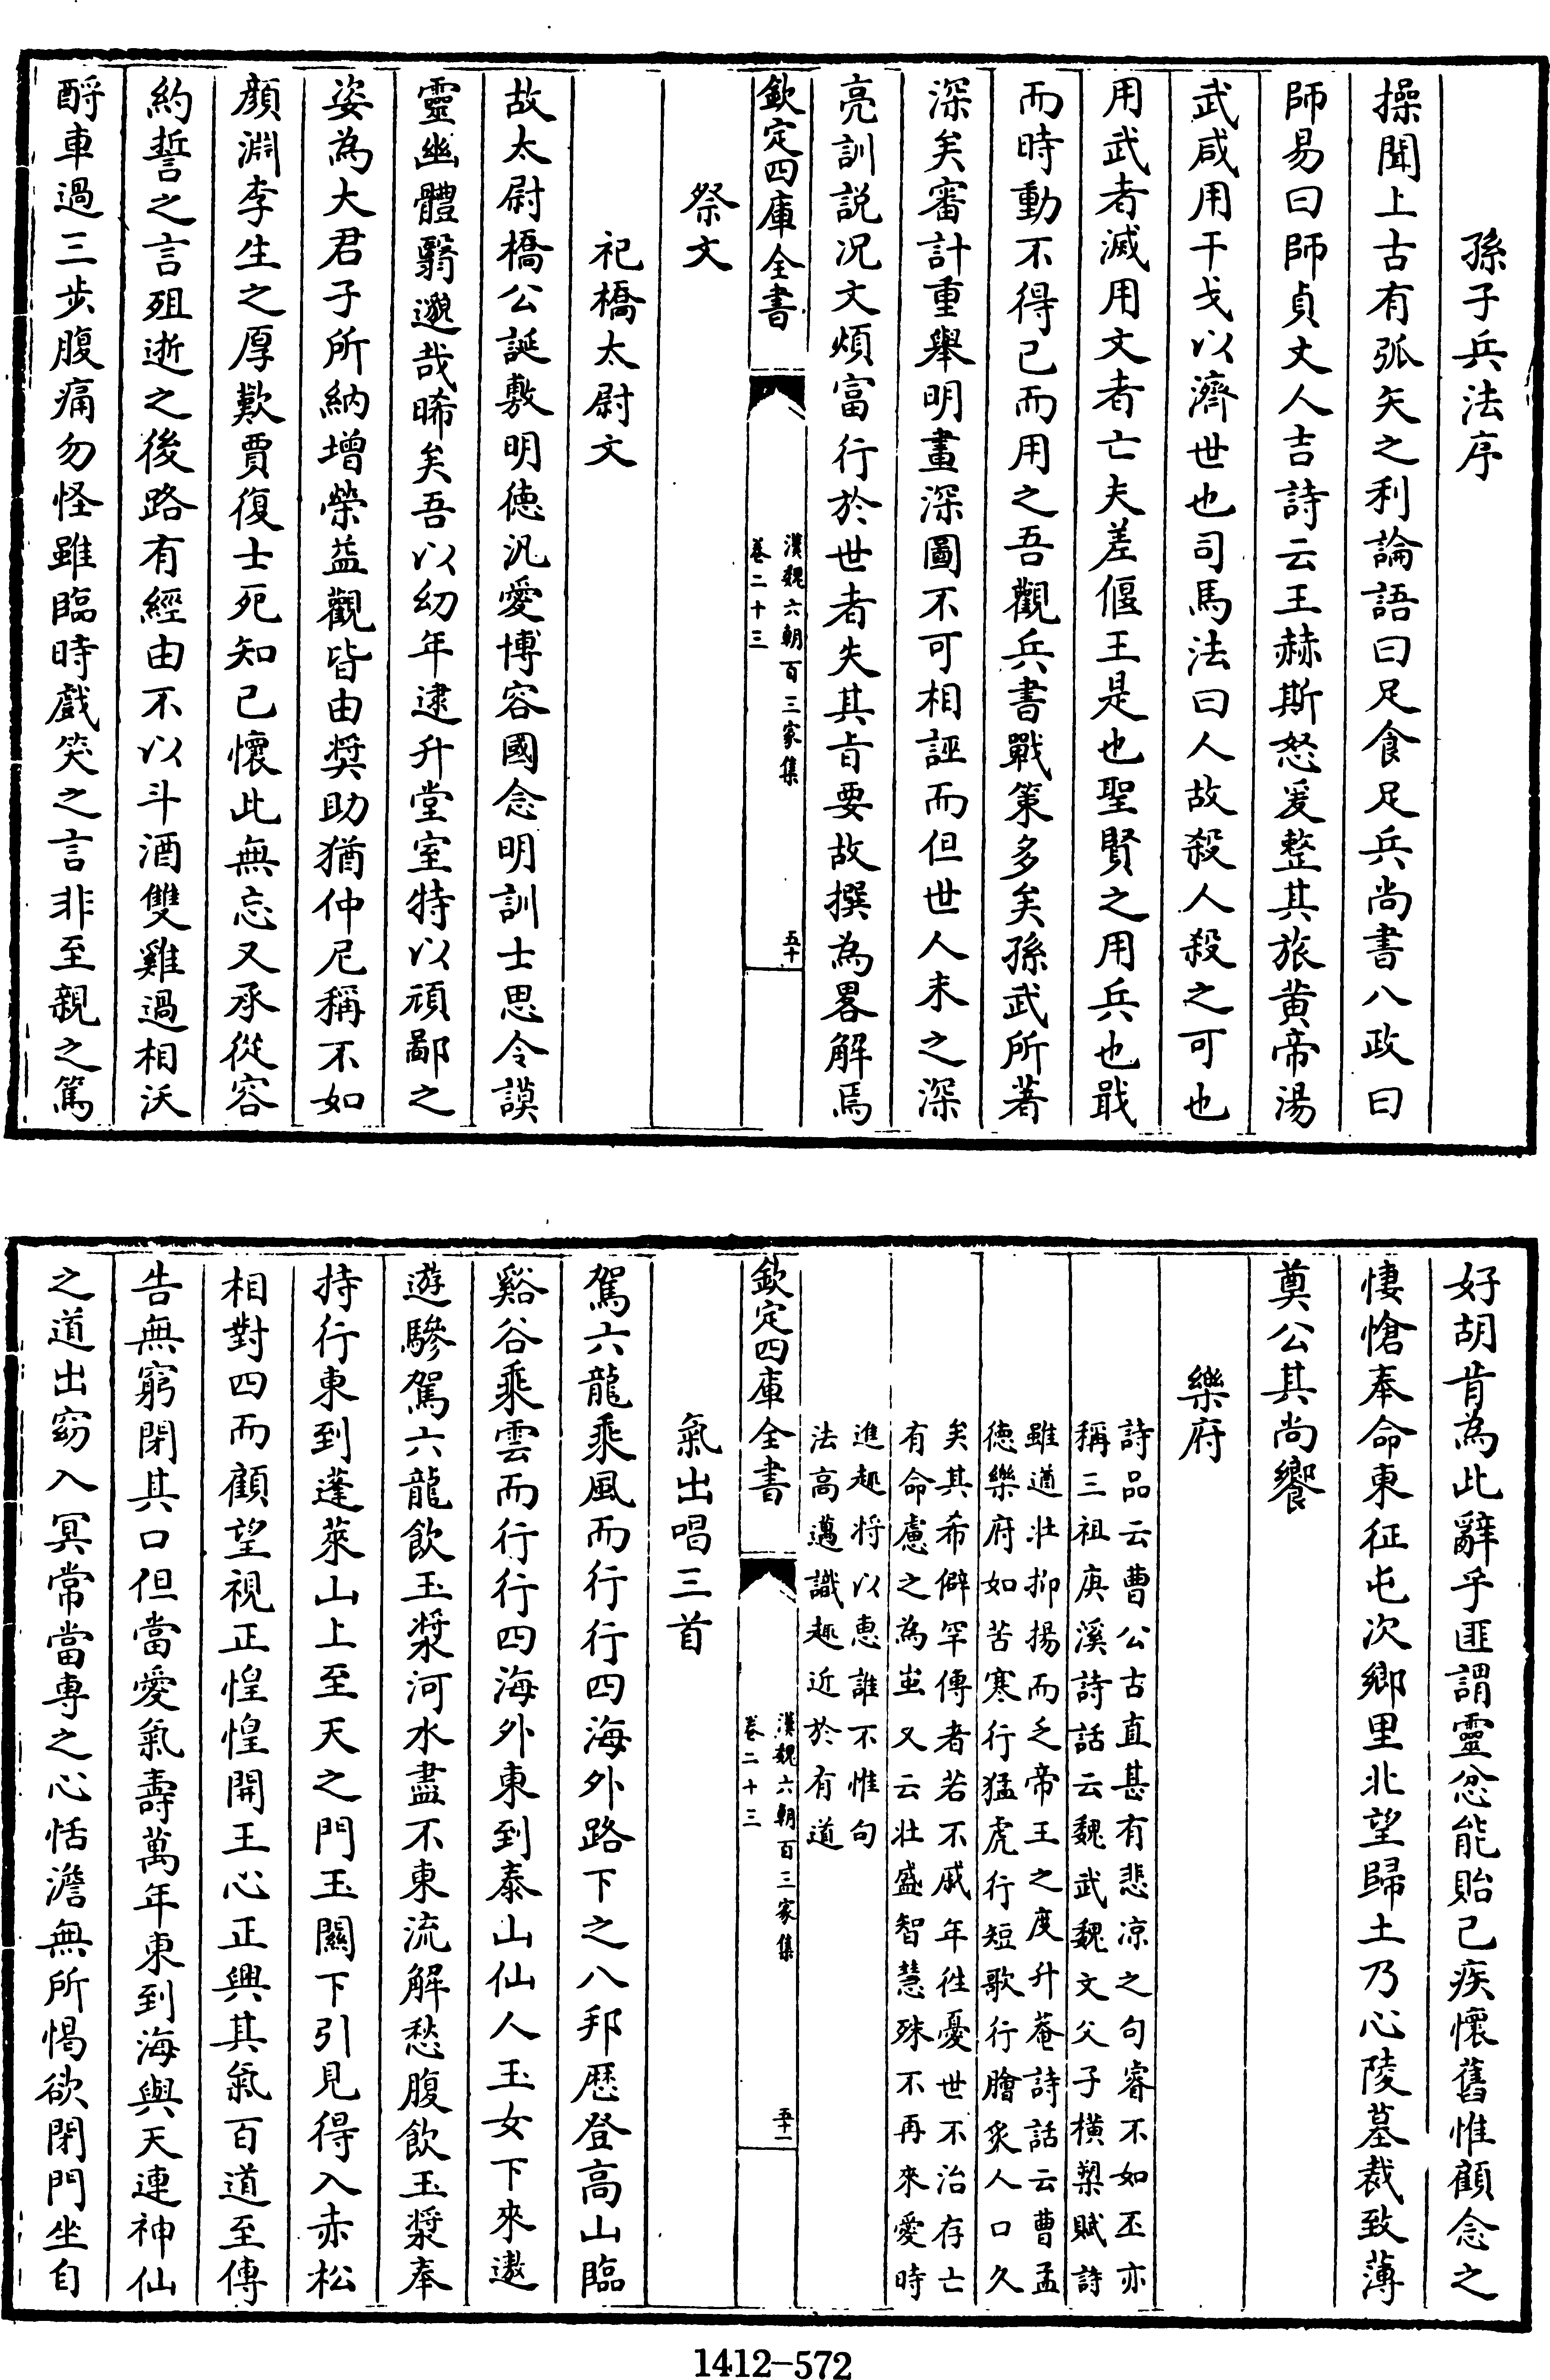 孫子兵法序
操聞上古有弧矢之利論語曰足食足兵尚書八政曰
師易曰師貞丈人吉詩云王赫斯怒爰整其旅黃帝湯
武咸用干戈以濟世也司馬法曰人故殺人殺之可也
用武者滅用文者亡夫差偃王是也聖賢之用兵也戢
而時動不得已而用之吾觀兵書戰策多矣孫武所著
深矣審計重舉明畫深圖不可相誣而但世人未之深
亮訓説况文煩富行於世者失其旨要故撰為畧解焉
欽定四庫全書
漢魏六朝百三家集
卷二十三
五十
祭文
祀橋太尉文
故太尉橋公誕敷明徳汎愛博容國念明訓士思令謨
靈幽體翳邈哉晞矣吾以幼年逮升堂室特以頑鄙之
姿為大君子所納增榮益觀皆由奬助猶仲尼稱不如
顔淵李生之厚歎賈復士死知已懷此無忘又承從容
約誓之言殂逝之後路有經由不以斗酒雙雞過相沃
酹車過三步腹痛勿怪雖臨時戲笑之言非至親之篤
好胡肯為此辭乎匪謂靈忿能貽已疾懷舊惟顧念之
悽愴奉命東征屯次鄉里北望歸土乃心陵墓裁致薄
奠公其尚饗
樂府
詩品云曹公古直甚有悲凉之句睿不如丕亦
稱三祖庚溪詩話云魏武魏文父子橫槊賦詩
雖遒壯抑揚而乏帝王之度升菴詩話云曹孟
德樂府如苦寒行猛虎行短歌行膾炙人口久
矣其希僻罕傳者若不戚年往憂世不治存亡
有命慮之為蚩又云壯盛智慧殊不再來愛時
進趣将以惠誰不惟句
法高邁識趣近於有道
欽定四庫全書
漢魏六朝百三家集
卷二十三
五十一
氣出唱三首
駕六龍乘風而行行四海外路下之八邦歷登高山臨
谿谷乘雲而行行四海外東到泰山仙人玉女下來遨
遊驂駕六龍飲玉漿河水盡不東流解愁腹飲玉漿奉
持行東到蓬萊山上至天之門玉闕下引見得入赤松
相對四而顧望視正惶惶開王心正興其氣百道至傳
告無窮閉其口但當愛氣壽萬年東到海與天連神仙
之道出窈入冥常當專之心恬澹無所愒欲閉門坐自
1412-572